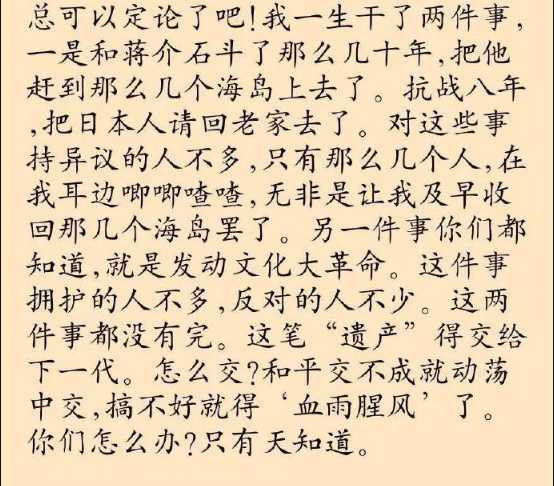 总可以定论了吧!我一生干了两件事,
一是和蒋介石斗了那么几十年,把他
赶到那么几个海岛上去了。抗战八年
,把日本人请回老家去了。对这些事
持异议的人不多,只有那么几个人,在
我耳边唧唧喳喳,无非是让我及早收
回那几个海岛罢了。另一件事你们都
知道,就是发动文化大革命。这件事
拥护的人不多,反对的人不少。这两
件事都没有完。这笔“遗产”得交给
下一代。怎么交?和平交不成就动荡
中交,搞不好就得‘血雨腥风’了。
你们怎么办?只有天知道。